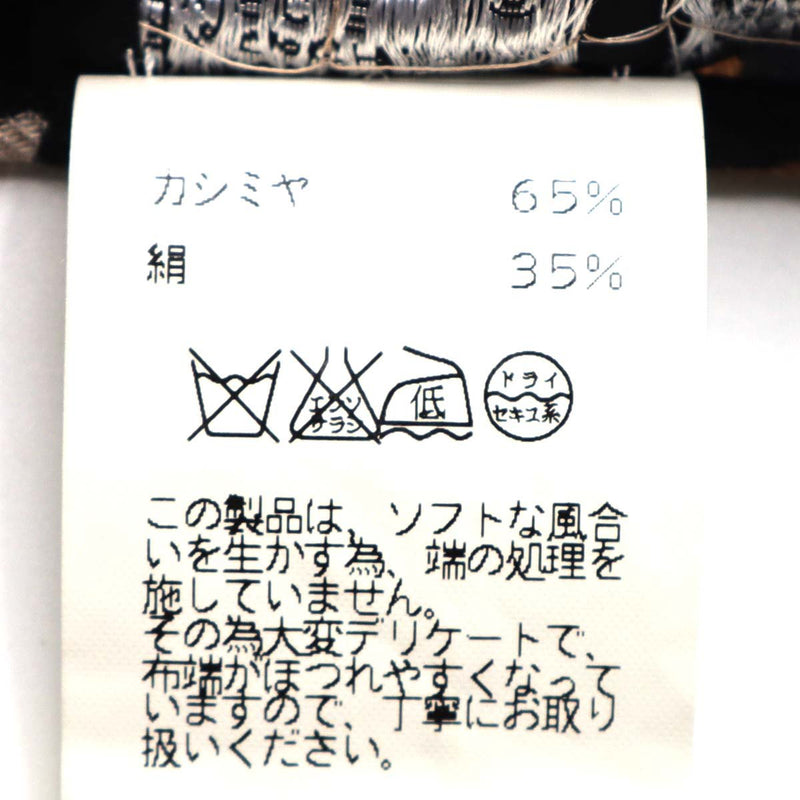 カシミヤ 65%
絹 35%
エンソ
サラシ
低
ドライ
セキユ系
この製品は、ソフトな風合
いを生かす為、端の処理を
施していません。
その為大変デリケートで、
布端がほつれやすくなって
いますので、丁寧にお取り
扱いください。